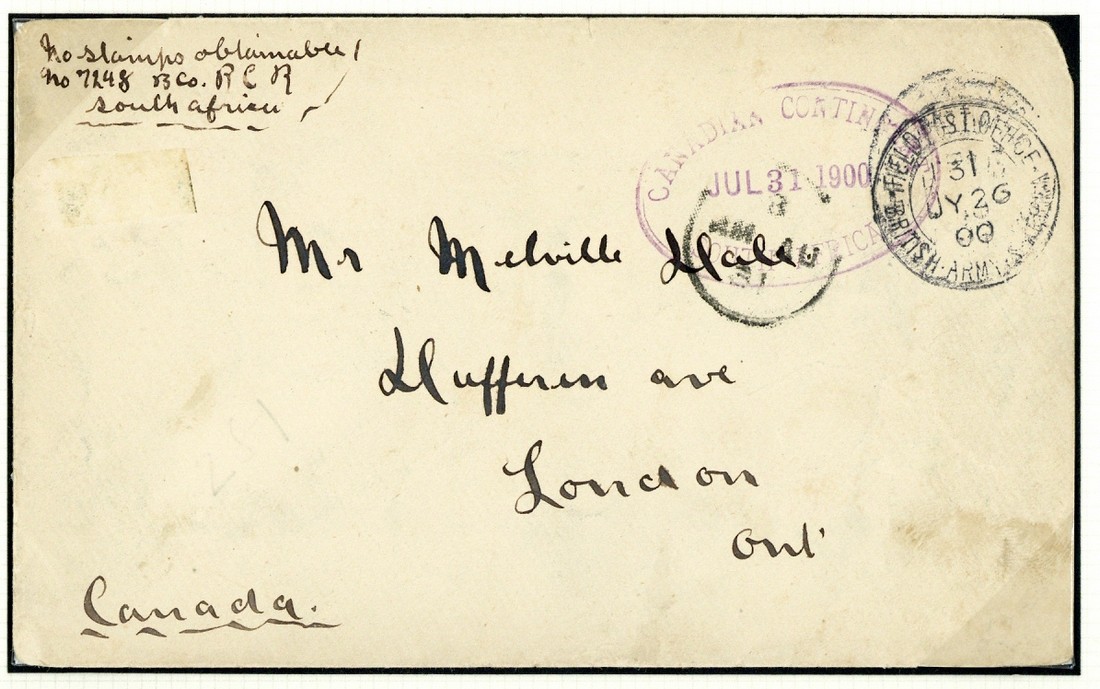 No stamps obtainable /
No 7248 B Co. R C R
South Africa
CANADIAN CONTIN
JUL 31 1900
FIELD POST OFFICE
31
JY 26
00
BRITISH ARMY S. AFRICA
Mr Melville Hale
Dufferin ave
London
Ont
Canada.